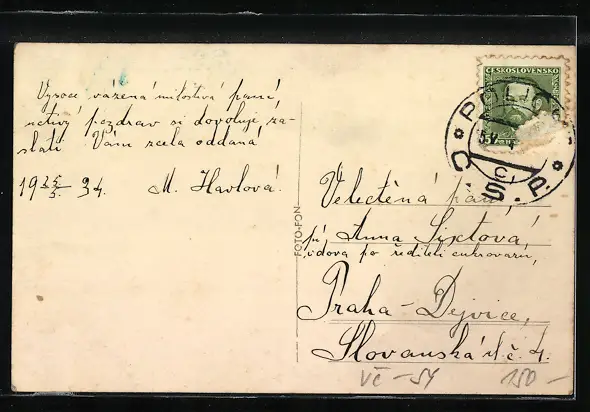 Vysoce vážená milostivá paní,
uctivý pozdrav si dovoluji za-
slati Vám zcela oddaná
19 25/5. 34. M. Havlová.
ČESKOSLOVENSKO
ČSP.
FOTO-FON
Velectěná paní,
pí. Anna Sixtová,
vdova po řediteli cukrovaru,
Praha - Dejvice,
Slovanská ul. č. 4.
VČ - 54 150 -